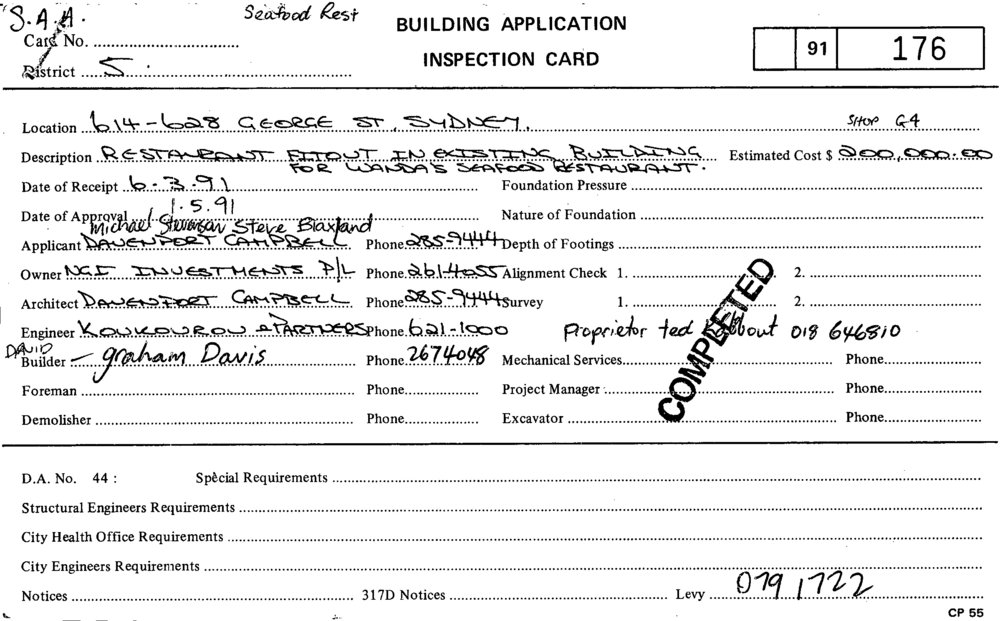 S.A.A. Seafood Rest
BUILDING APPLICATION
INSPECTION CARD
91 176
Card No.
District 5
Location 614-628 GEORGE ST, SYDNEY. SHOP G4
Description RESTAURANT FITOUT IN EXISTING BUILDING Estimated Cost $ 200,000.00
FOR WANDA'S SEAFOOD RESTAURANT.
Date of Receipt 6.3.91 Foundation Pressure
Date of Approval 1.5.91 Nature of Foundation
Michael Stevenson Steve Blaxland
Applicant DAVENPORT CAMPBELL Phone 285-9444 Depth of Footings
Owner NGI INVESTMENTS P/L Phone 2614055 Alignment Check 1. 2.
Architect DAVENPORT CAMPBELL Phone 285-9444 Survey 1. 2.
Engineer KOUKOUROU & PARTNERS Phone 621-1000 Proprietor ted 018 646810
DAVID
Builder - graham Davis Phone 2674048 Mechanical Services Phone
COMPLETED
Foreman Phone Project Manager Phone
Demolisher Phone Excavator Phone
D.A. No. 44 : Special Requirements
Structural Engineers Requirements
City Health Office Requirements
City Engineers Requirements
Notices 317D Notices Levy 0791722
CP 55